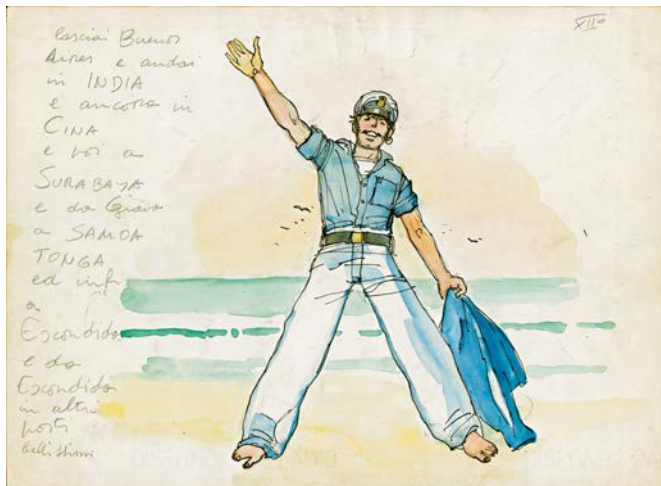 XII°
...lasciai Buenos
Aires e andai
in INDIA
e ancora in
CINA
e poi a
SURABAYA
e da Giava
a SAMOA
TONGA
ed infi
a
Escondida
e da
Escondida
in altri
posti
bellissimi